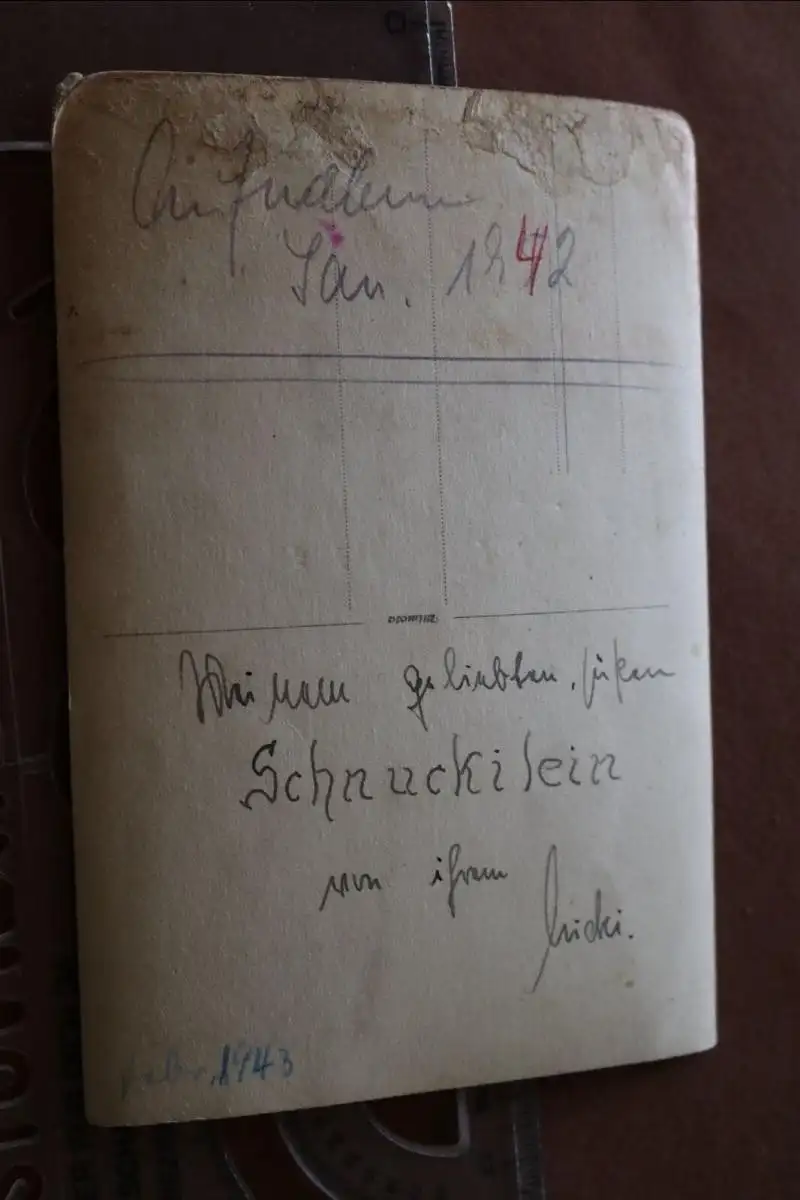 Aufnahme
Jän. 1942
Mimosa
Meinem geliebten, süßen
Schnuckilein
von ihrem
Febr. 1943